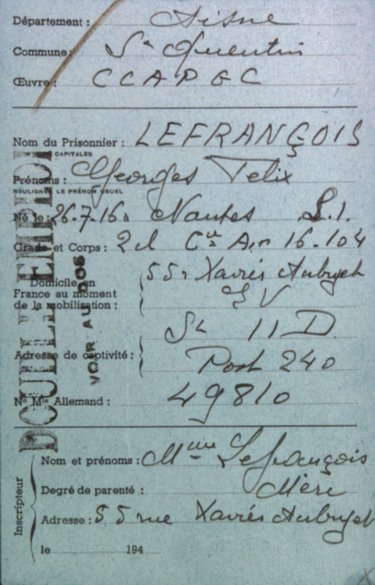 Département : Aisne
Commune : St Quentin
Œuvre : C C A P G C
Nom du Prisonnier : LEFRANÇOIS
CAPITALES
Prénoms : Georges Felix
SOULIGNER LE PRÉNOM USUEL
Né le : 26-7-16 à Nantes L. I.
Grade et Corps : 2 cl Cie A, 16-104
Domicile en
France au moment
de la mobilisation :
55 r Xavier Aubryet
St Q
St II D
Adresse de captivité :
Post 240
No Mle Allemand : 49810
DOUBLE EMPLOI
VOIR AU DOS
Inscripteur
Nom et prénoms : Mme Lefrançois
Degré de parenté : Mère
Adresse : 55 rue Xavier Aubryet
le 194